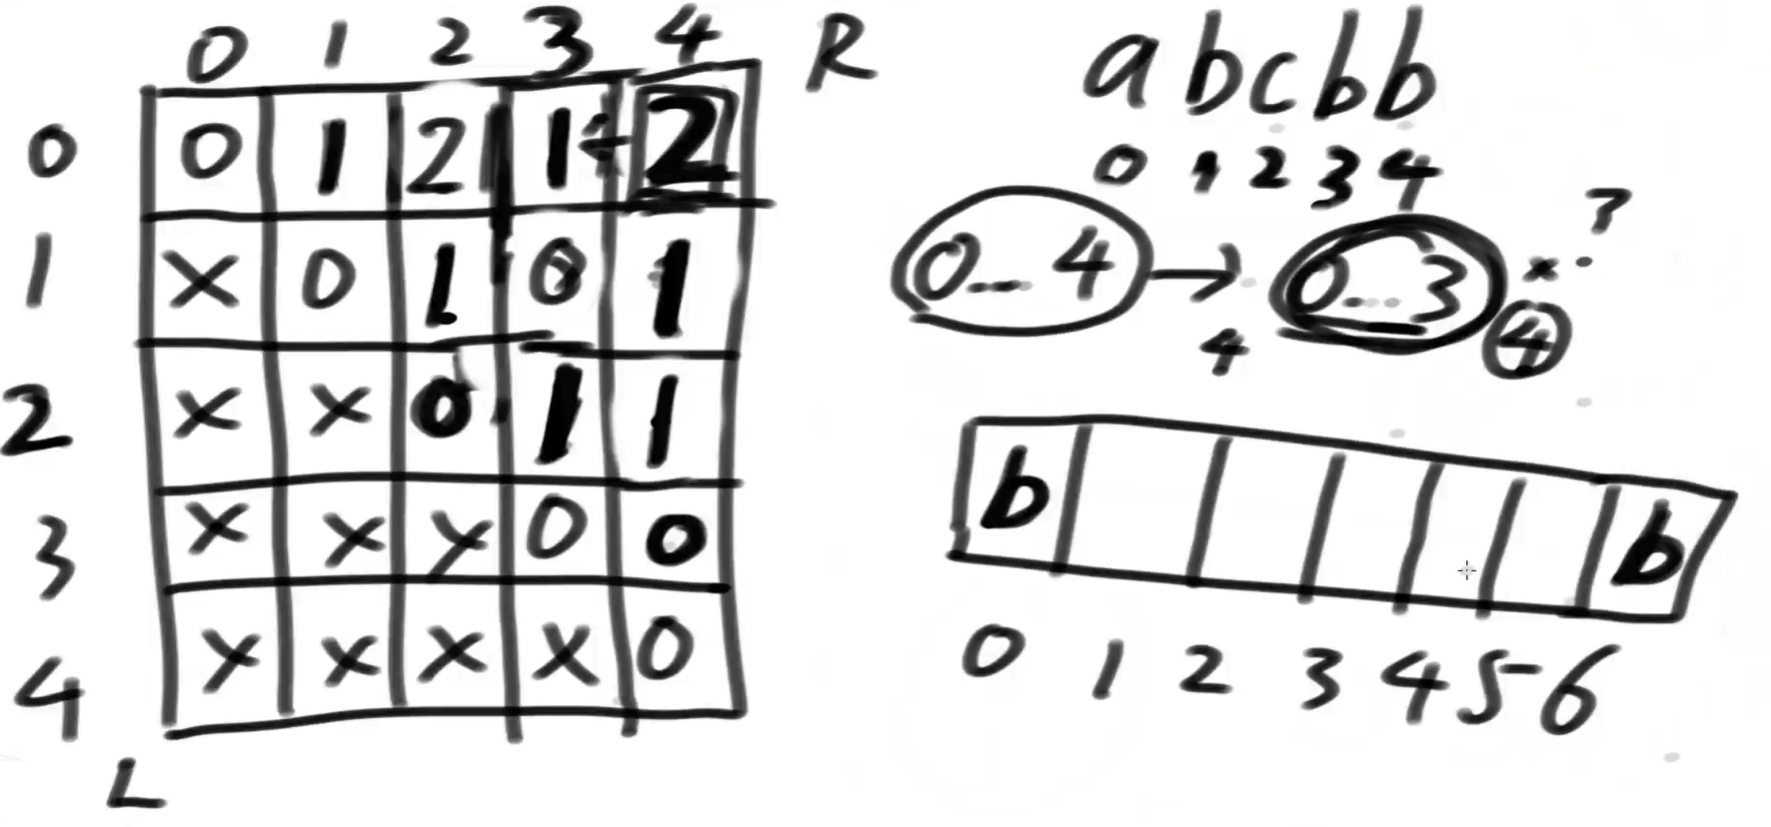 0 1 2 3 4 R
0 0 1 2 1 2
1 x 0 1 0 1
2 x x 0 1 1
3 x x x 0 0
4 x x x x 0
L
abcbb
0 1 2 3 4
0...4 → 0...3 ?
4 4
b b
0 1 2 3 4 5 6